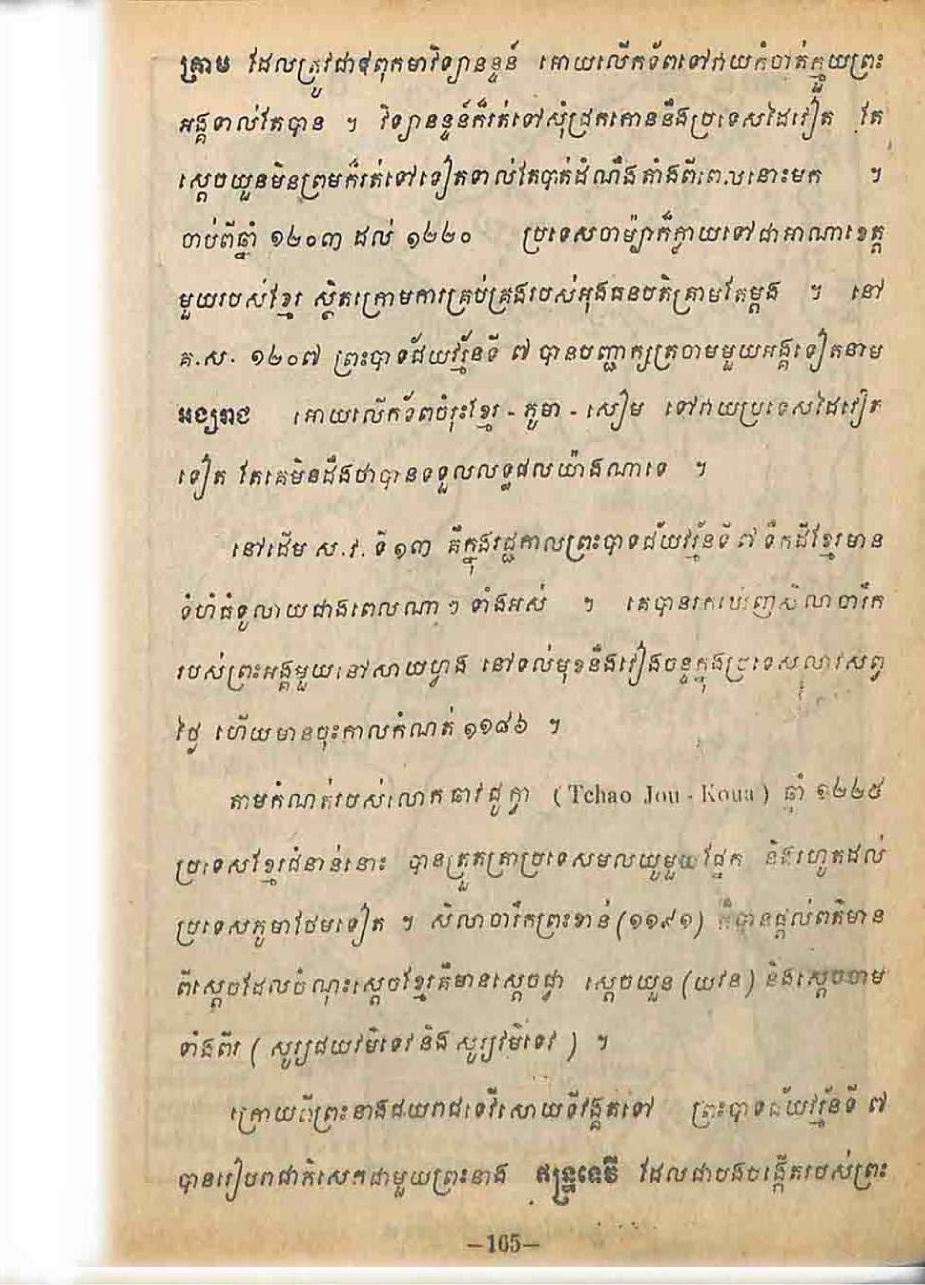 គ្រាម ដែលត្រូវជាឪពុកមាវិទ្យានន្ទន៍ អោយលើកទ័ពទៅវាយកំចាត់ក្មួយព្រះ
អង្គទាល់តែបាន ។ វិទ្យានន្ទន៍ក៏រត់ទៅសុំជ្រកកោននឹងប្រទេសដៃវៀត តែ
ស្ដេចយួនមិនព្រមក៏រត់ទៅទៀតទាល់តែបាត់ដំណឹងតាំងពីពេលនោះមក ។
ចាប់ពីឆ្នាំ ១២០៣ ដល់ ១២២០ ប្រទេសចាម្ប៉ាក៏ក្លាយទៅជាអាណាខេត្ត
មួយរបស់ខ្មែរ ស្ថិតក្រោមការគ្រប់គ្រងរបស់អុងធនបតិគ្រាមតែម្ដង ។ នៅ
គ.ស. ១២០៧ ព្រះបាទជ័យវរ្ម័នទី ៧ បានបញ្ជាក្សត្រចាមមួយអង្គទៀតនាម
អង្សរាជ អោយលើកទ័ពចំរុះខ្មែរ - ភូមា - សៀម ទៅវាយប្រទេសដៃវៀត
ទៀត តែគេមិនដឹងថាបានទទួលលទ្ធផលយ៉ាងណាទេ ។
នៅដើម ស.វ. ទី ១៣ គឺក្នុងរជ្ជកាលព្រះបាទជ័យវរ្ម័នទី ៧ ទឹកដីខ្មែរមាន
ទំហំធំទូលាយជាងពេលណា ៗ ទាំងអស់ ។ គេបានរកឃើញសិលាចារឹក
របស់ព្រះអង្គមួយនៅសាយហ្វង នៅទល់មុខនឹងវៀងចន្ទក្នុងប្រទេសលាវសព្វ
ថ្ងៃ ហើយមានចុះកាលកំណត់ ១១៨៦ ។
តាមកំណត់របស់លោកធាវជូក្វា ( Tchao Jou - Koua ) ឆ្នាំ ១២២៥
ប្រទេសខ្មែរជំនាន់នោះ បានត្រួតត្រាប្រទេសមលយូមួយផ្នែក និងរហូតដល់
ប្រទេសភូមាថែមទៀត ។ សិលាចារឹកព្រះខាន់ (១១៩១) ក៏បានផ្ដល់ពត៌មាន
ពីស្ដេចដែលចំណុះស្ដេចខ្មែរគឺមានស្ដេចជ្វា ស្ដេចយួន (យវន) និងស្ដេចចាម
ទាំងពីរ ( សូរ្យជយវមិទេវ និង សូរ្យវមិទេវ ) ។
ក្រោយពីព្រះនាងជយរាជទេវីសោយទីវង្គតទៅ ព្រះបាទជ័យវរ្ម័នទី ៧
បានរៀបរាជាភិសេកជាមួយព្រះនាង ឥន្ទ្រទេវី ដែលជាបងបង្កើតរបស់ព្រះ
-165-